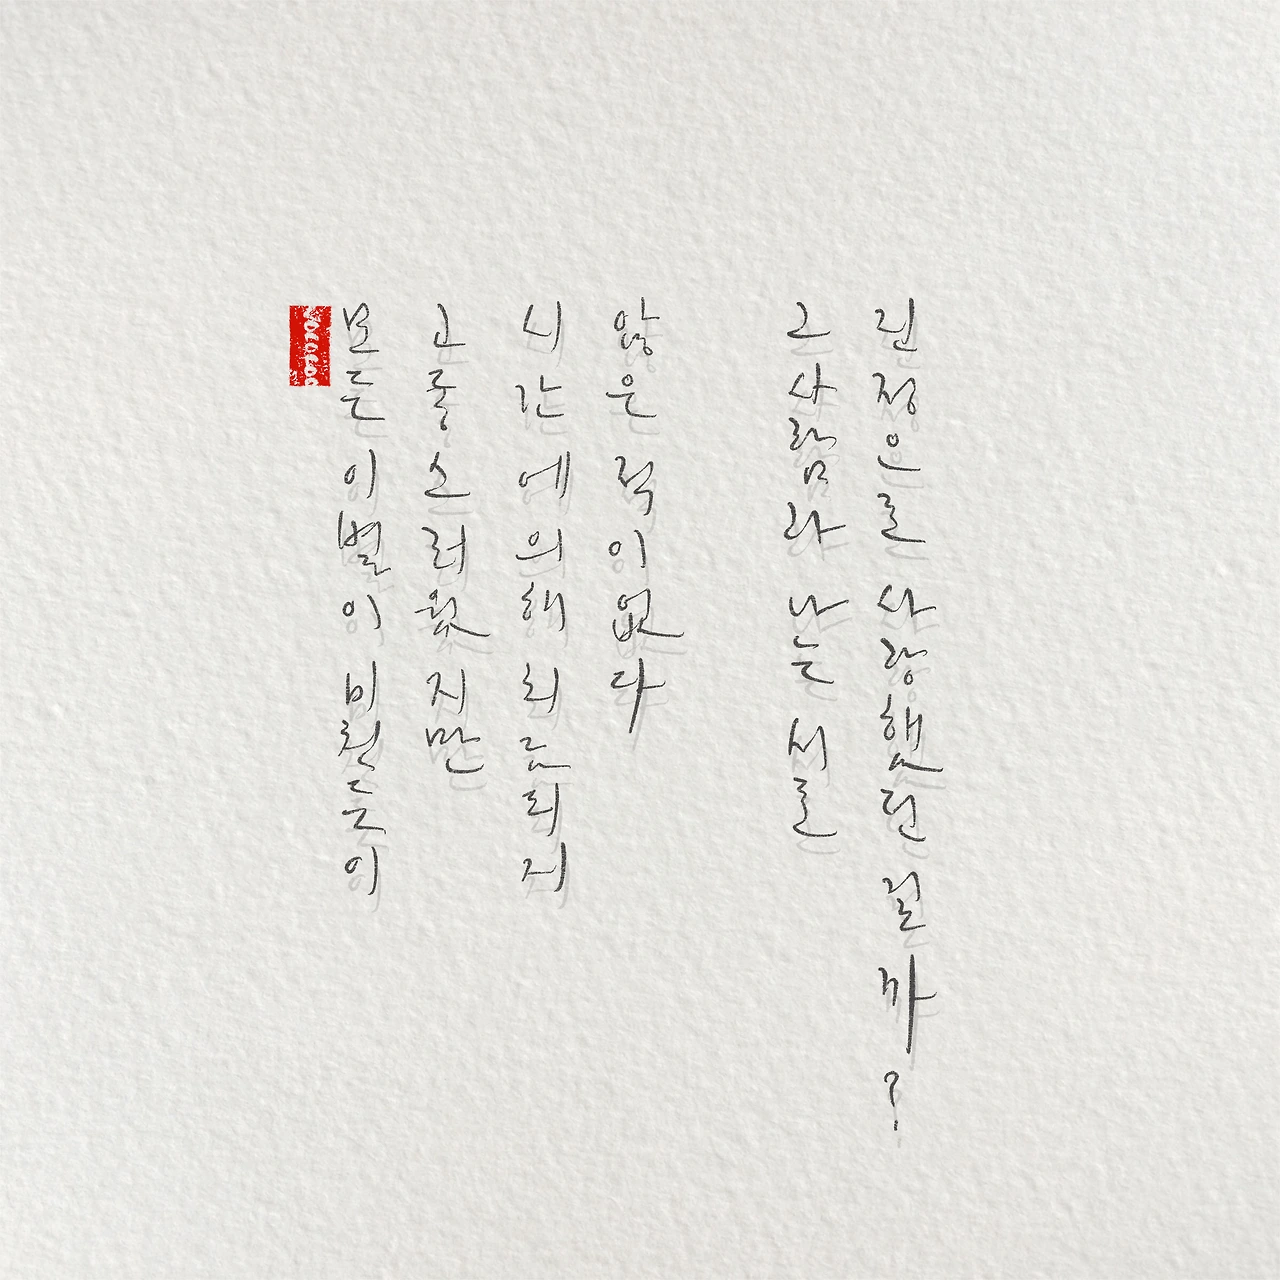 모든 이별이 미친듯이
고통스러웠지만
시간에 의해 치료되지
않은 적이 없다
그 사람과 나는 서로
진정으로 사랑했던 걸까?